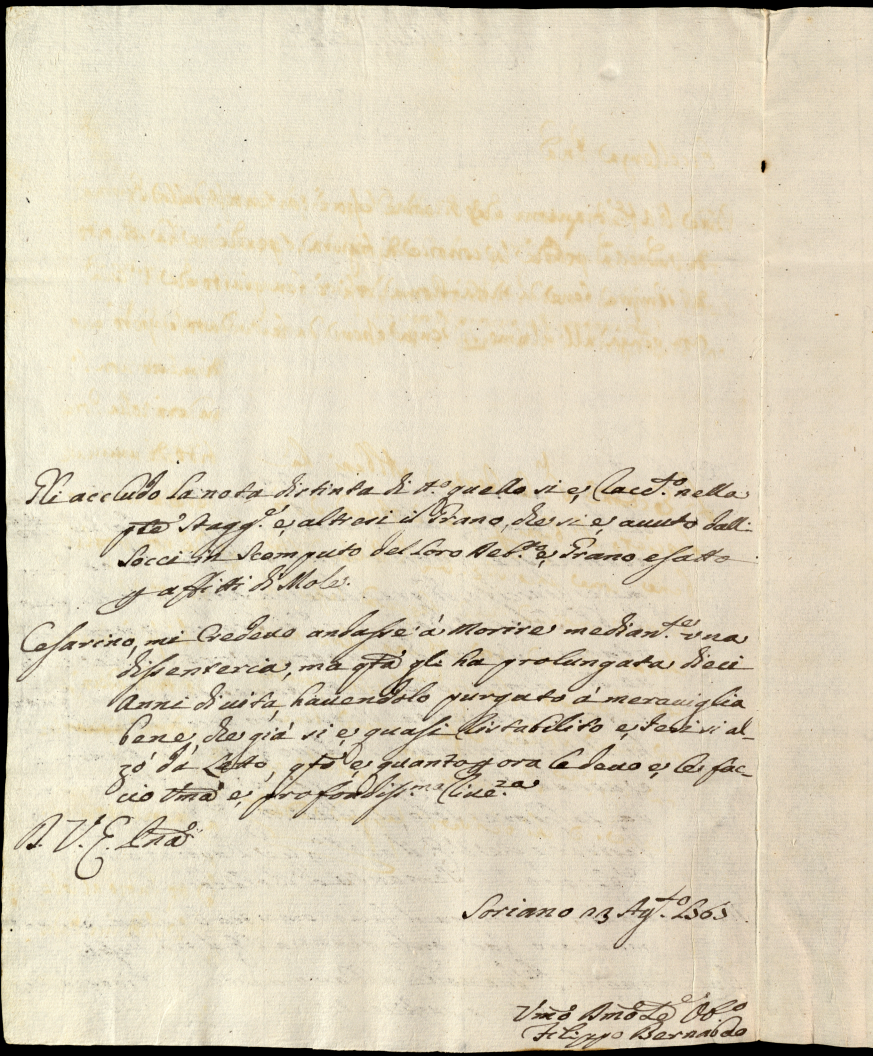 Gli accludo la nota distinta di tt.o quello si è, nella
pte Stagg.e e, altresi il Grano, che si è auuto dalli
Socci in Scomputo del Loro Deb.to e, Grano esatto
p affitti di Mole.
Cesarino, mi Credeuo andasse á Morire median.te una
dissenteria, ma qta gli ha prolungata dieci
Anni di uita, hauendolo purgato á merauiglia
bene, che giá si è quasi ristabilito e, ieri si al-
zó dá Letto, qto è quanto p ora le deuo e, le fac-
cio Vma e, profondiss.ma riue.za
D. V. E. Pna
Soriano 13 Ag.to 1765
Vmo Dmo Obo
Filippo Bernabdo